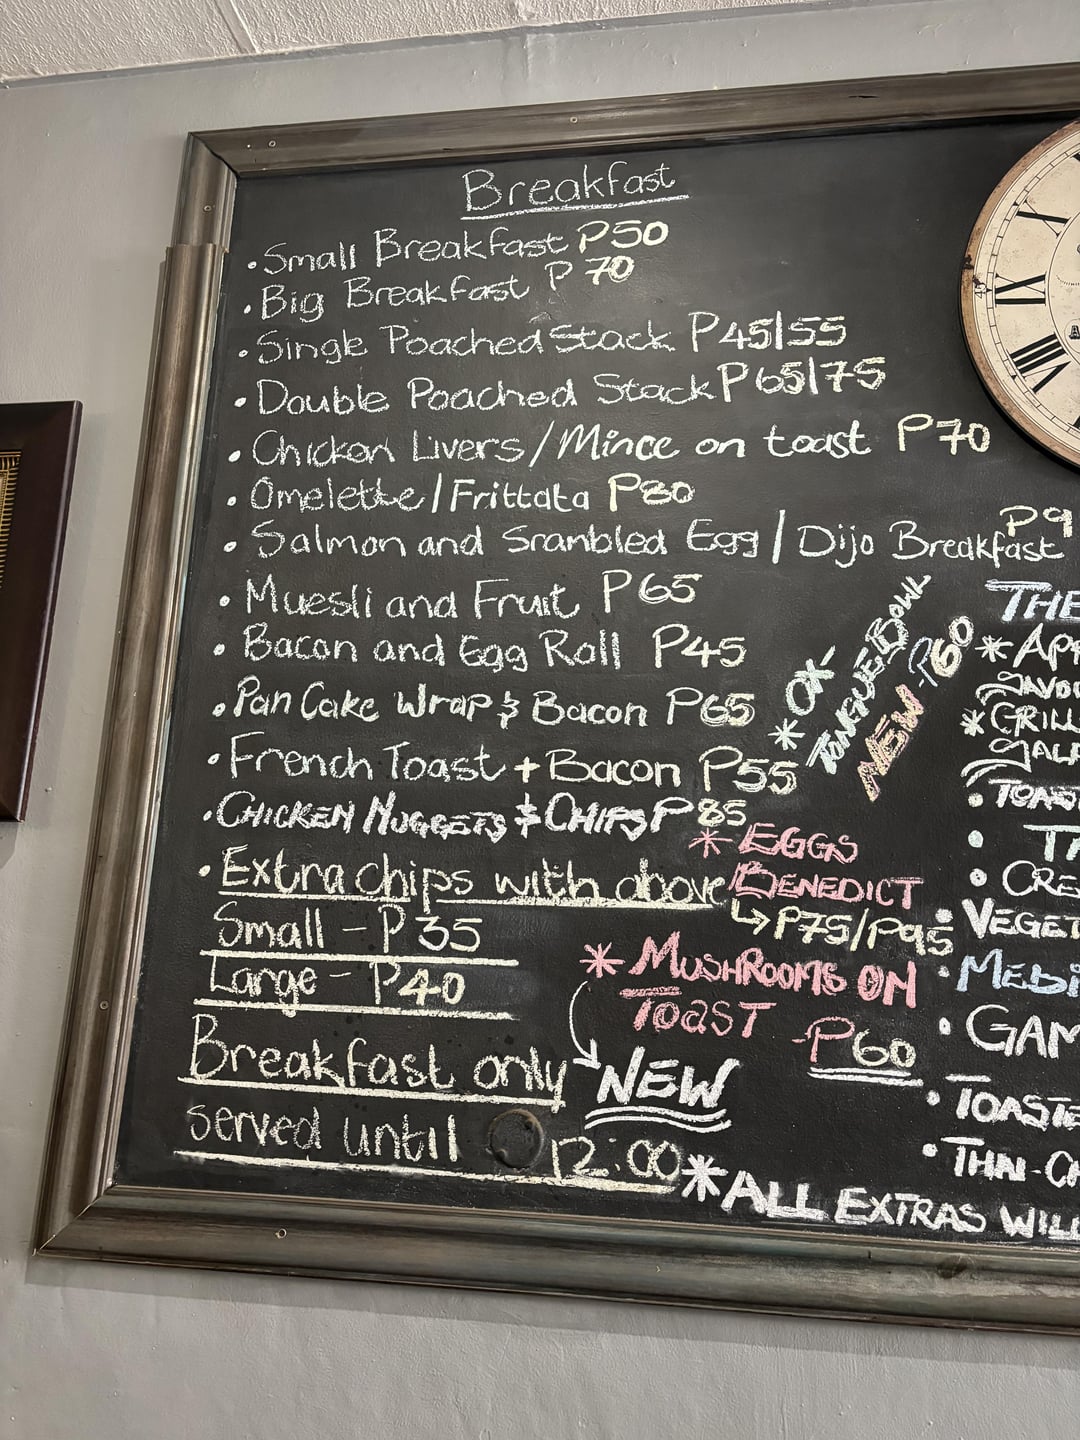 Breakfast
• Small Breakfast P50
• Big Breakfast P 70
• Single Poached Stack P45|55
• Double Poached Stack P65|75
• Chicken Livers/Mince on toast P70
• Omelette/Frittata P80
• Salmon and Srambled Egg / Dijo Breakfast P9
• Muesli and Fruit P65
• Bacon and Egg Roll P45
• Pan Cake Wrap & Bacon P65
• French Toast + Bacon P55
• CHICKEN NUGGETS & CHIPS P85
• Extra chips with above
Small - P35
Large - P40
Breakfast only
served until 12:00
* OX-
TONGUE BOWL
NEW -P60
* EGGS
BENEDICT
↳ P75/P95
* MUSHROOMS ON
TOAST -P60
NEW
* ALL EXTRAS WILL
THE
* APP
SAVO
* GRILL
SALA
• TOAST
• TA
• CRE
• VEGET
• MEDI
• GAM
• TOASTE
• THAI-CH